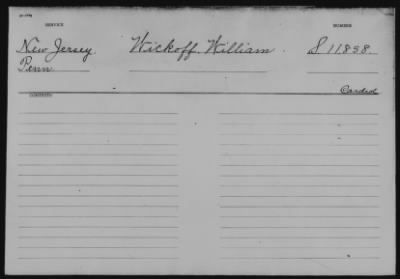 SERVICE NUMBER
New Jersey Wickoff, William. S. 11838.
Penn.
Carded
CONTENTS: